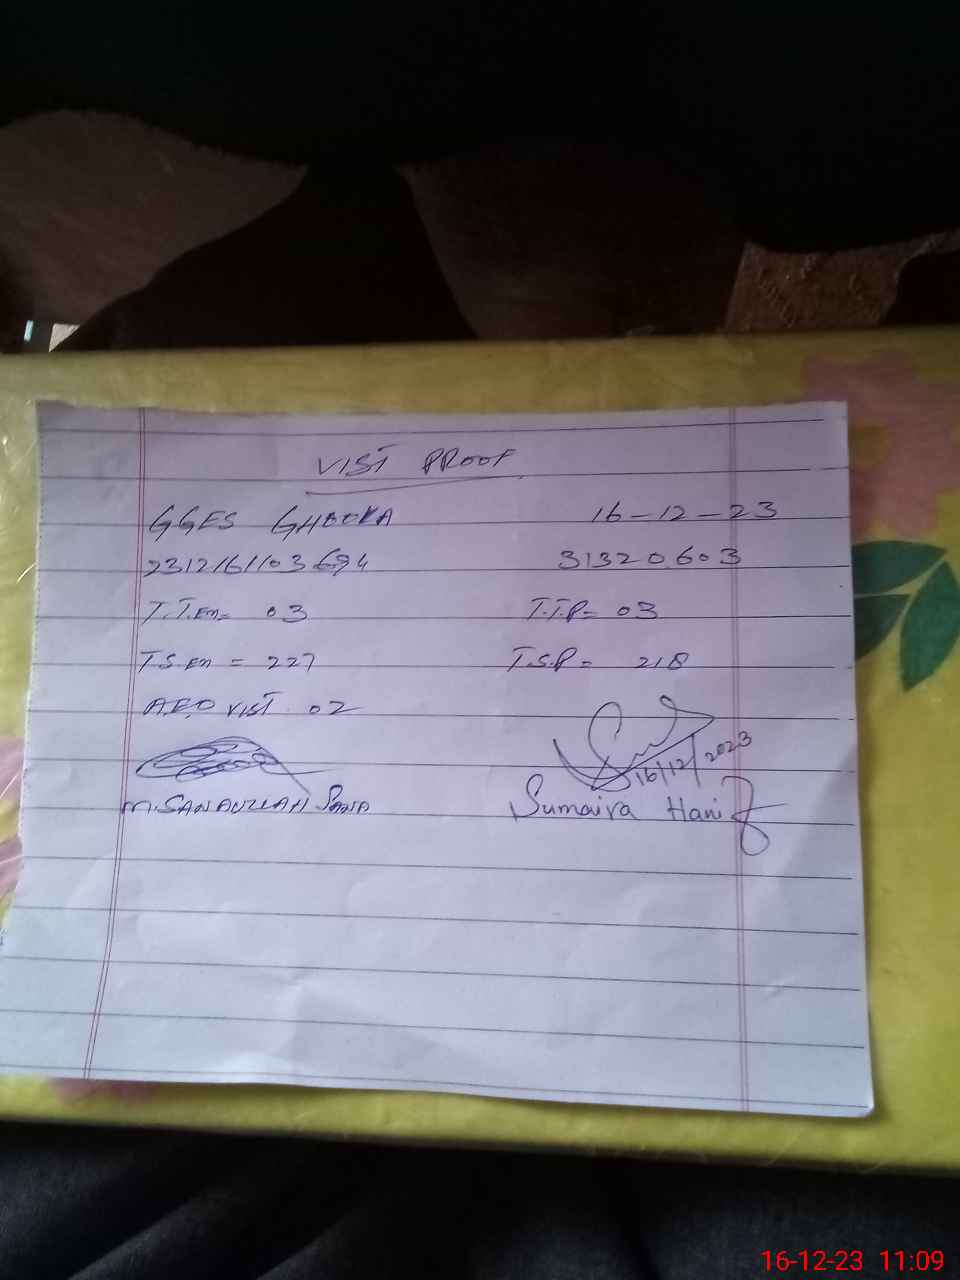 VIST PROOF
GGES GHBOKA 16-12-23
31320603
T.T.En= 03 T.T.P= 03
T.S.En = 227 T.S.P= 218
A.E.O VIST. 02
16/12/2023
M.SANAULLAH Sumaira Hanif
16-12-23 11:09